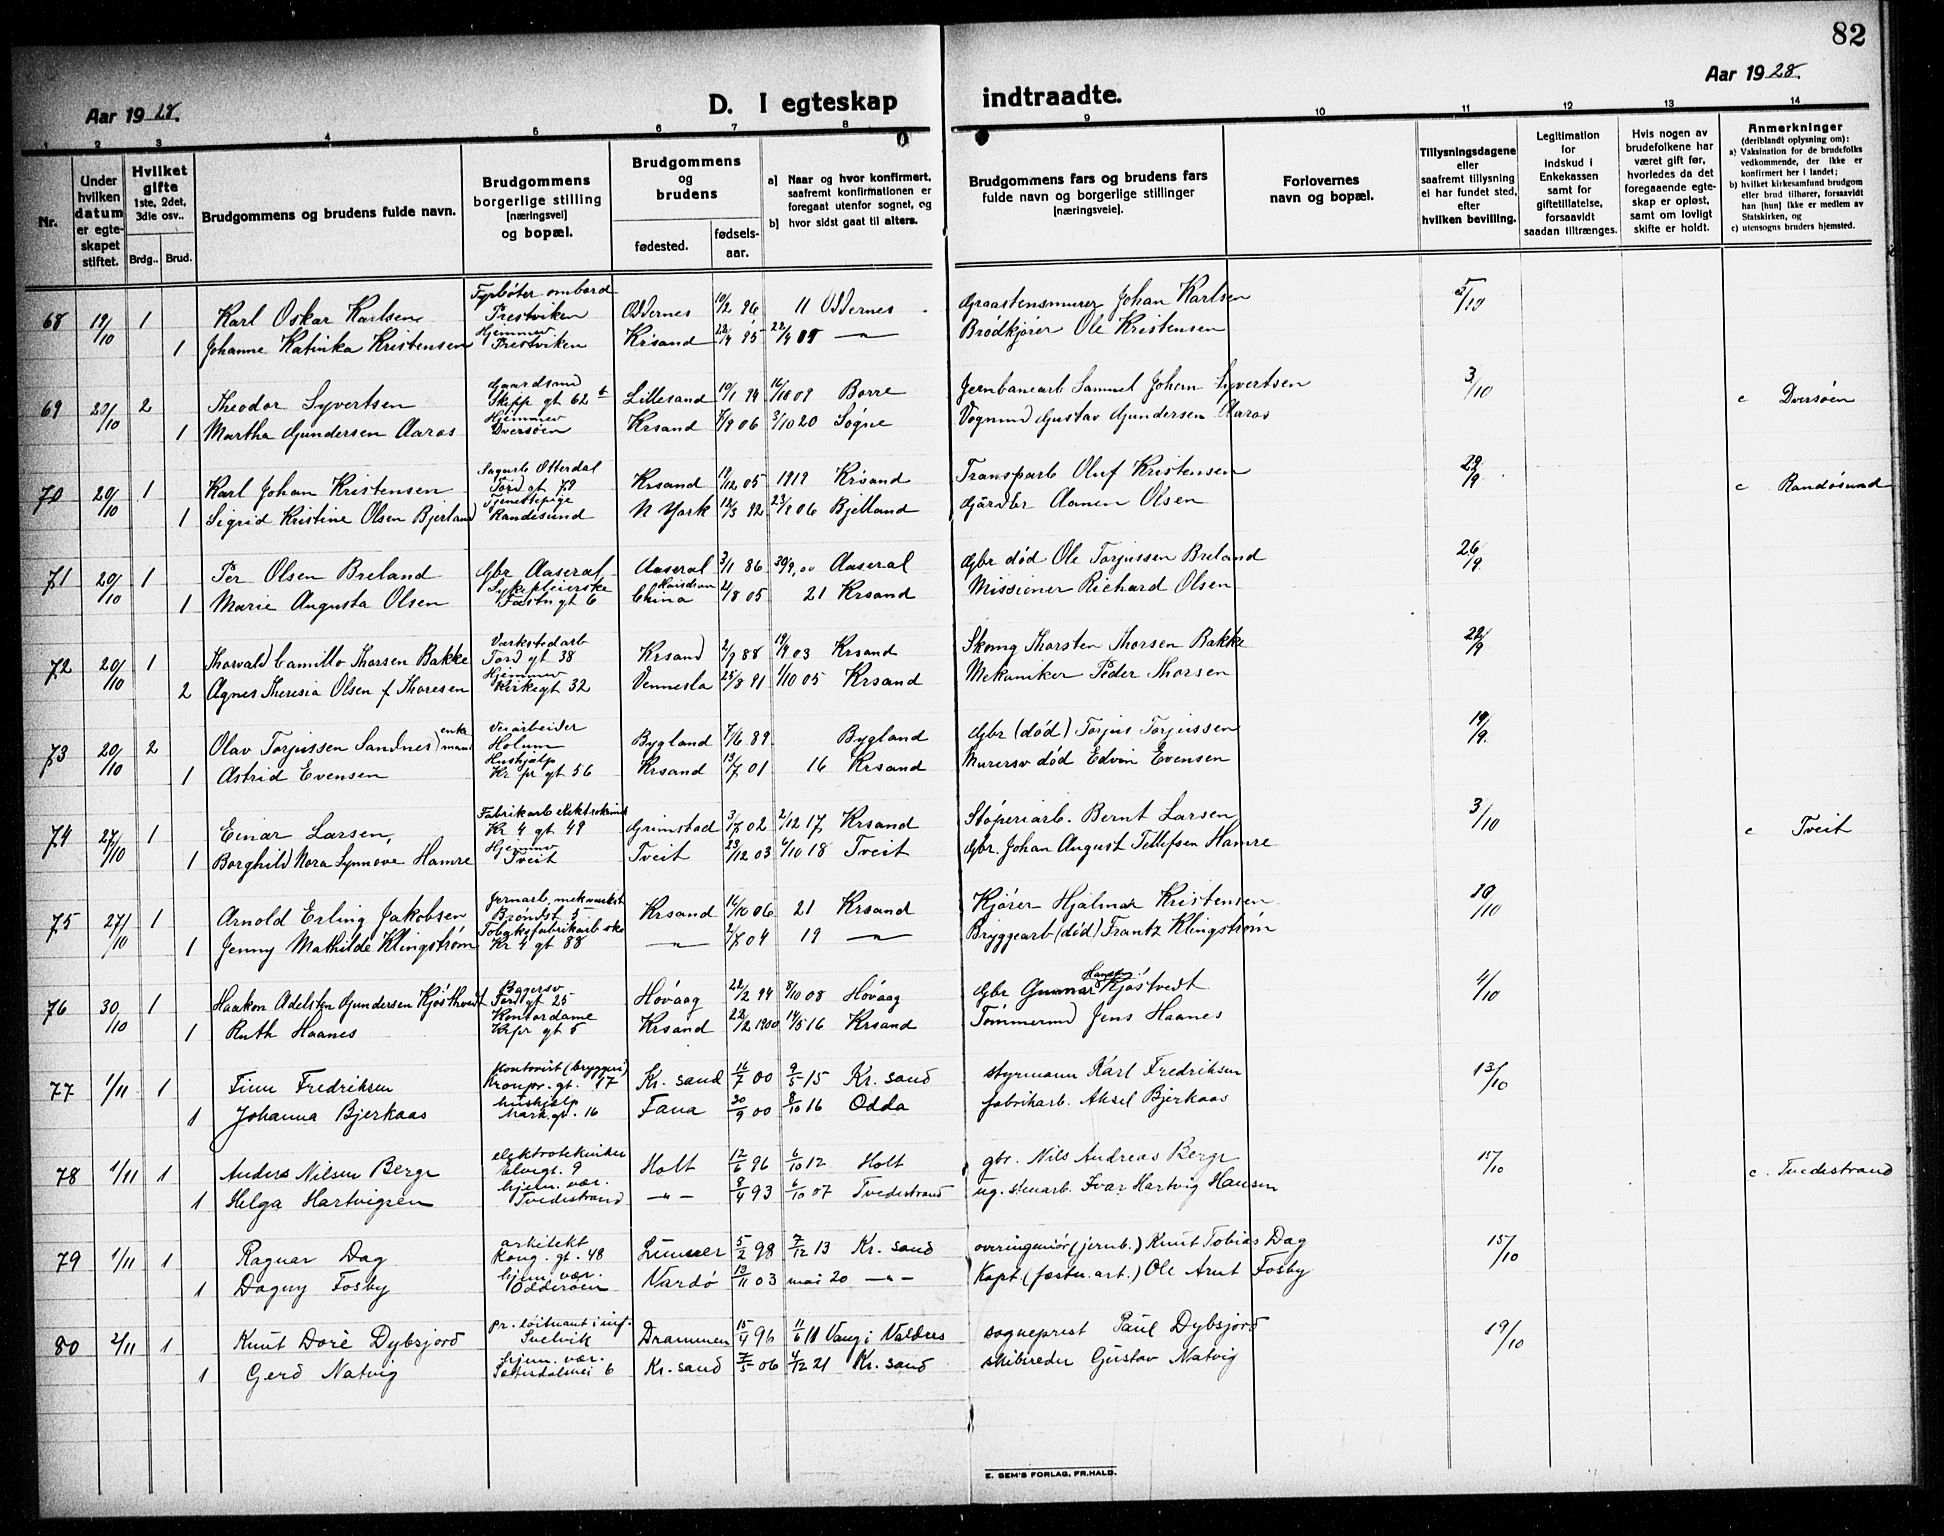 82
Aar 1928.
D. I egteskap indtraadte.
Aar 1928.
1 2 3 4 5 6 7 8 9 10 11 12 13 14
Nr.
Under hvilken datum er egteskapet stiftet.
Hvilket gifte 1ste, 2det, 3die osv..
Brdg.. Brud.
Brudgommens og brudens fulde navn.
Brudgommens borgerlige stilling [næringsvei] og bopæl.
Brudgommens og brudens
fødested. fødsels-aar.
a) Naar og hvor konfirmert, saafremt konfirmationen er foregaat utenfor sognet, og
b) hvor sidst gaat til alters.
Brudgommens fars og brudens fars fulde navn og borgerlige stillinger [næringsveie].
Forlovernes navn og bopæl.
Tillysningsdagene eller saafremt tillysning ei har fundet sted, efter hvilken bevilling.
Legitimation for indskud i Enkekassen samt for giftetillatelse, forsaavidt saadan tiltrænges.
Hvis nogen av brudefolkene har været gift før, hvorledes da det foregaaende egteskap er opløst, samt om lovligt skifte er holdt.
Anmerkninger (deriblandt oplysning om):
a) Vaksination for de brudefolks vedkommende, der ikke er konfirmert her i landet;
b) hvilket kirkesamfund brudgom eller brud tilhører, forsaavidt han [hun] ikke er medlem av Statskirken, og
c) utensogns bruders hjemsted.
68 19/10 1 Karl Oskar Karlsen Fyrbøter ombord Trestviken Oddernes 19/2 96 11 Oddernes Graastensmurer Johan Karlsen
1 Johanne Katinka Kristensen Hjemmev Trestviken Krsand 95 09 — " — Brødkjører Ole Kristensen
69 20/10 2 Theodor Syvertsen Gaardsmd Skipp gt 62 b Lillesand 10/1 94 16/10 09 Borre Jernbanearb Samuel Johan Syvertsen 3/10 c Dversøen
1 Martha Gundersen Aaros Hjemmev Dversøen Krsand 06 3/10 20 Søgne Vognmd Gustav Gundersen Aaros
70 20/10 1 Karl Johan Kristensen Sagarb Otterdal Tord gt 79 Krsand 19/12 05 1919 Krsand Transparb Oluf Kristensen 29/9 c Randøsund
1 Sigrid Kristine Olsen Bjerland Tjenestepige Randesund N York 12/3 92 06 Bjelland Gårdbr Aanen Olsen
71 20/10 1 Per Olsen Breland Gbr Aaseral Aaseral 3/1 86 30/9 00 Aaseral Gbr død Ole Torjussen Breland 26/9
1 Marie Augusta Olsen Sykepleierske Fæstn gt 6 China 2/8 05 21 Krsand Missionær Richard Olsen
72 20/10 1 Thorvald Camillo Thorsen Bakke Verkstedarb Tord gt 38 Krsand 2/9 88 19/9 03 Krsand Skomg Thorsten Thorsen Bakke 22/9
2 Agnes Theresia Olsen f Thoresen Hjemmev Kirkegt 32 Vennesla 25/8 91 1/10 05 Krsand Mekaniker Peder Thorsen
73 20/10 2 Olav Torjussen Sandnes enkemand Veiarbeider Holum Bygland 7/6 89 Bygland Gbr (død) Torjus Torjussen 19/9
1 Astrid Evensen Hushjelp Kr pr gt 56 Krsand 13/7 01 16 Krsand Murersv død Edvin Evensen
74 27/10 1 Einar Larsen Fabrikarb elektrokemisk Kr 4 gt 49 Grimstad 3/7 02 2/12 17 Krsand Støperiarb. Bernt Larsen 3/10 c Tveit
1 Borghild Nora Synnøve Hamre Hjemmev Tveit Tveit 23/12 03 6/10 18 Tveit Gbr. Johan August Tellefsen Hamre
75 27/10 1 Arnold Erling Jakobsen Jernarb, mek verkst Brøndst 5 Krsand 14/10 06 21 Krsand Kjører Hjalmar Kristensen 10/10
1 Jenny Mathilde Klingstrøm Tobaksfabrikarb ske Kr 4 gt 88 — " — 2/7 04 19 — " — Bryggearb (død) Frantz Klingstrøm
76 30/10 1 Haakon Adelsten Gundersen Kjøstvedt Bagersv Tord gt 25 Høvaag 22/2 94 8/10 08 Høvaag Gbr Gunnar Hansen Kjøstvedt 4/10
1 Ruth Haanes Kontordame Kr pr gt 5 Krsand 22/2 1900 14/5 16 Krsand Tømmermd Jens Haanes
77 1/11 1 Finn Fredriksen kontorist (bryggeri) Kronpr. gt. 17 Kr. sand 16/7 00 9/5 15 Kr. sand styrmann Karl Fredriksen 13/10
1 Johanna Bjerkaas hushjelp Mark. gt. 16 Fana 30/9 00 8/10 16 Odda fabrikarb. Aksel Bjerkaas
78 1/11 1 Anders Nilsen Berge elektrotekniker Elvegt. 9 Holt 12/6 96 6/10 12 Holt gbr. Nils Andreas Berge 15/10 c. Tvedestrand
1 Helga Hartvigsen hjem. vær. Tvedestrand — " — 8/4 93 6/10 07 Tvedestrand ug. stenarb. Ivar Hartvig Hansen
79 1/11 1 Ragnar Dag arkitekt Kong. gt. 48 Lunner 5/2 98 7/12 13 Kr. sand overingeniør (jernb.) Knut Tobias Dag 15/10
1 Dagny Fosby hjem. vær. Odderøen Vardø 13/11 03 mai 20 — " — Kapt (fæstn. art.) Ole Arnt Fosby
80 2/11 1 Knut Dore Dybsjord pr. løitnant i inf. Svelvik Drammen 15/4 96 11/6 11 Vang i Valdres sogneprest Paul Dybsjord 19/10
1 Gerd Natvig hjem. vær. Sættesdalsvei 6 Kr. sand 7/5 06 4/12 21 Kr. sand skibsreder Gustav Natvig
E. SEM'S FORLAG, FR.HALD.